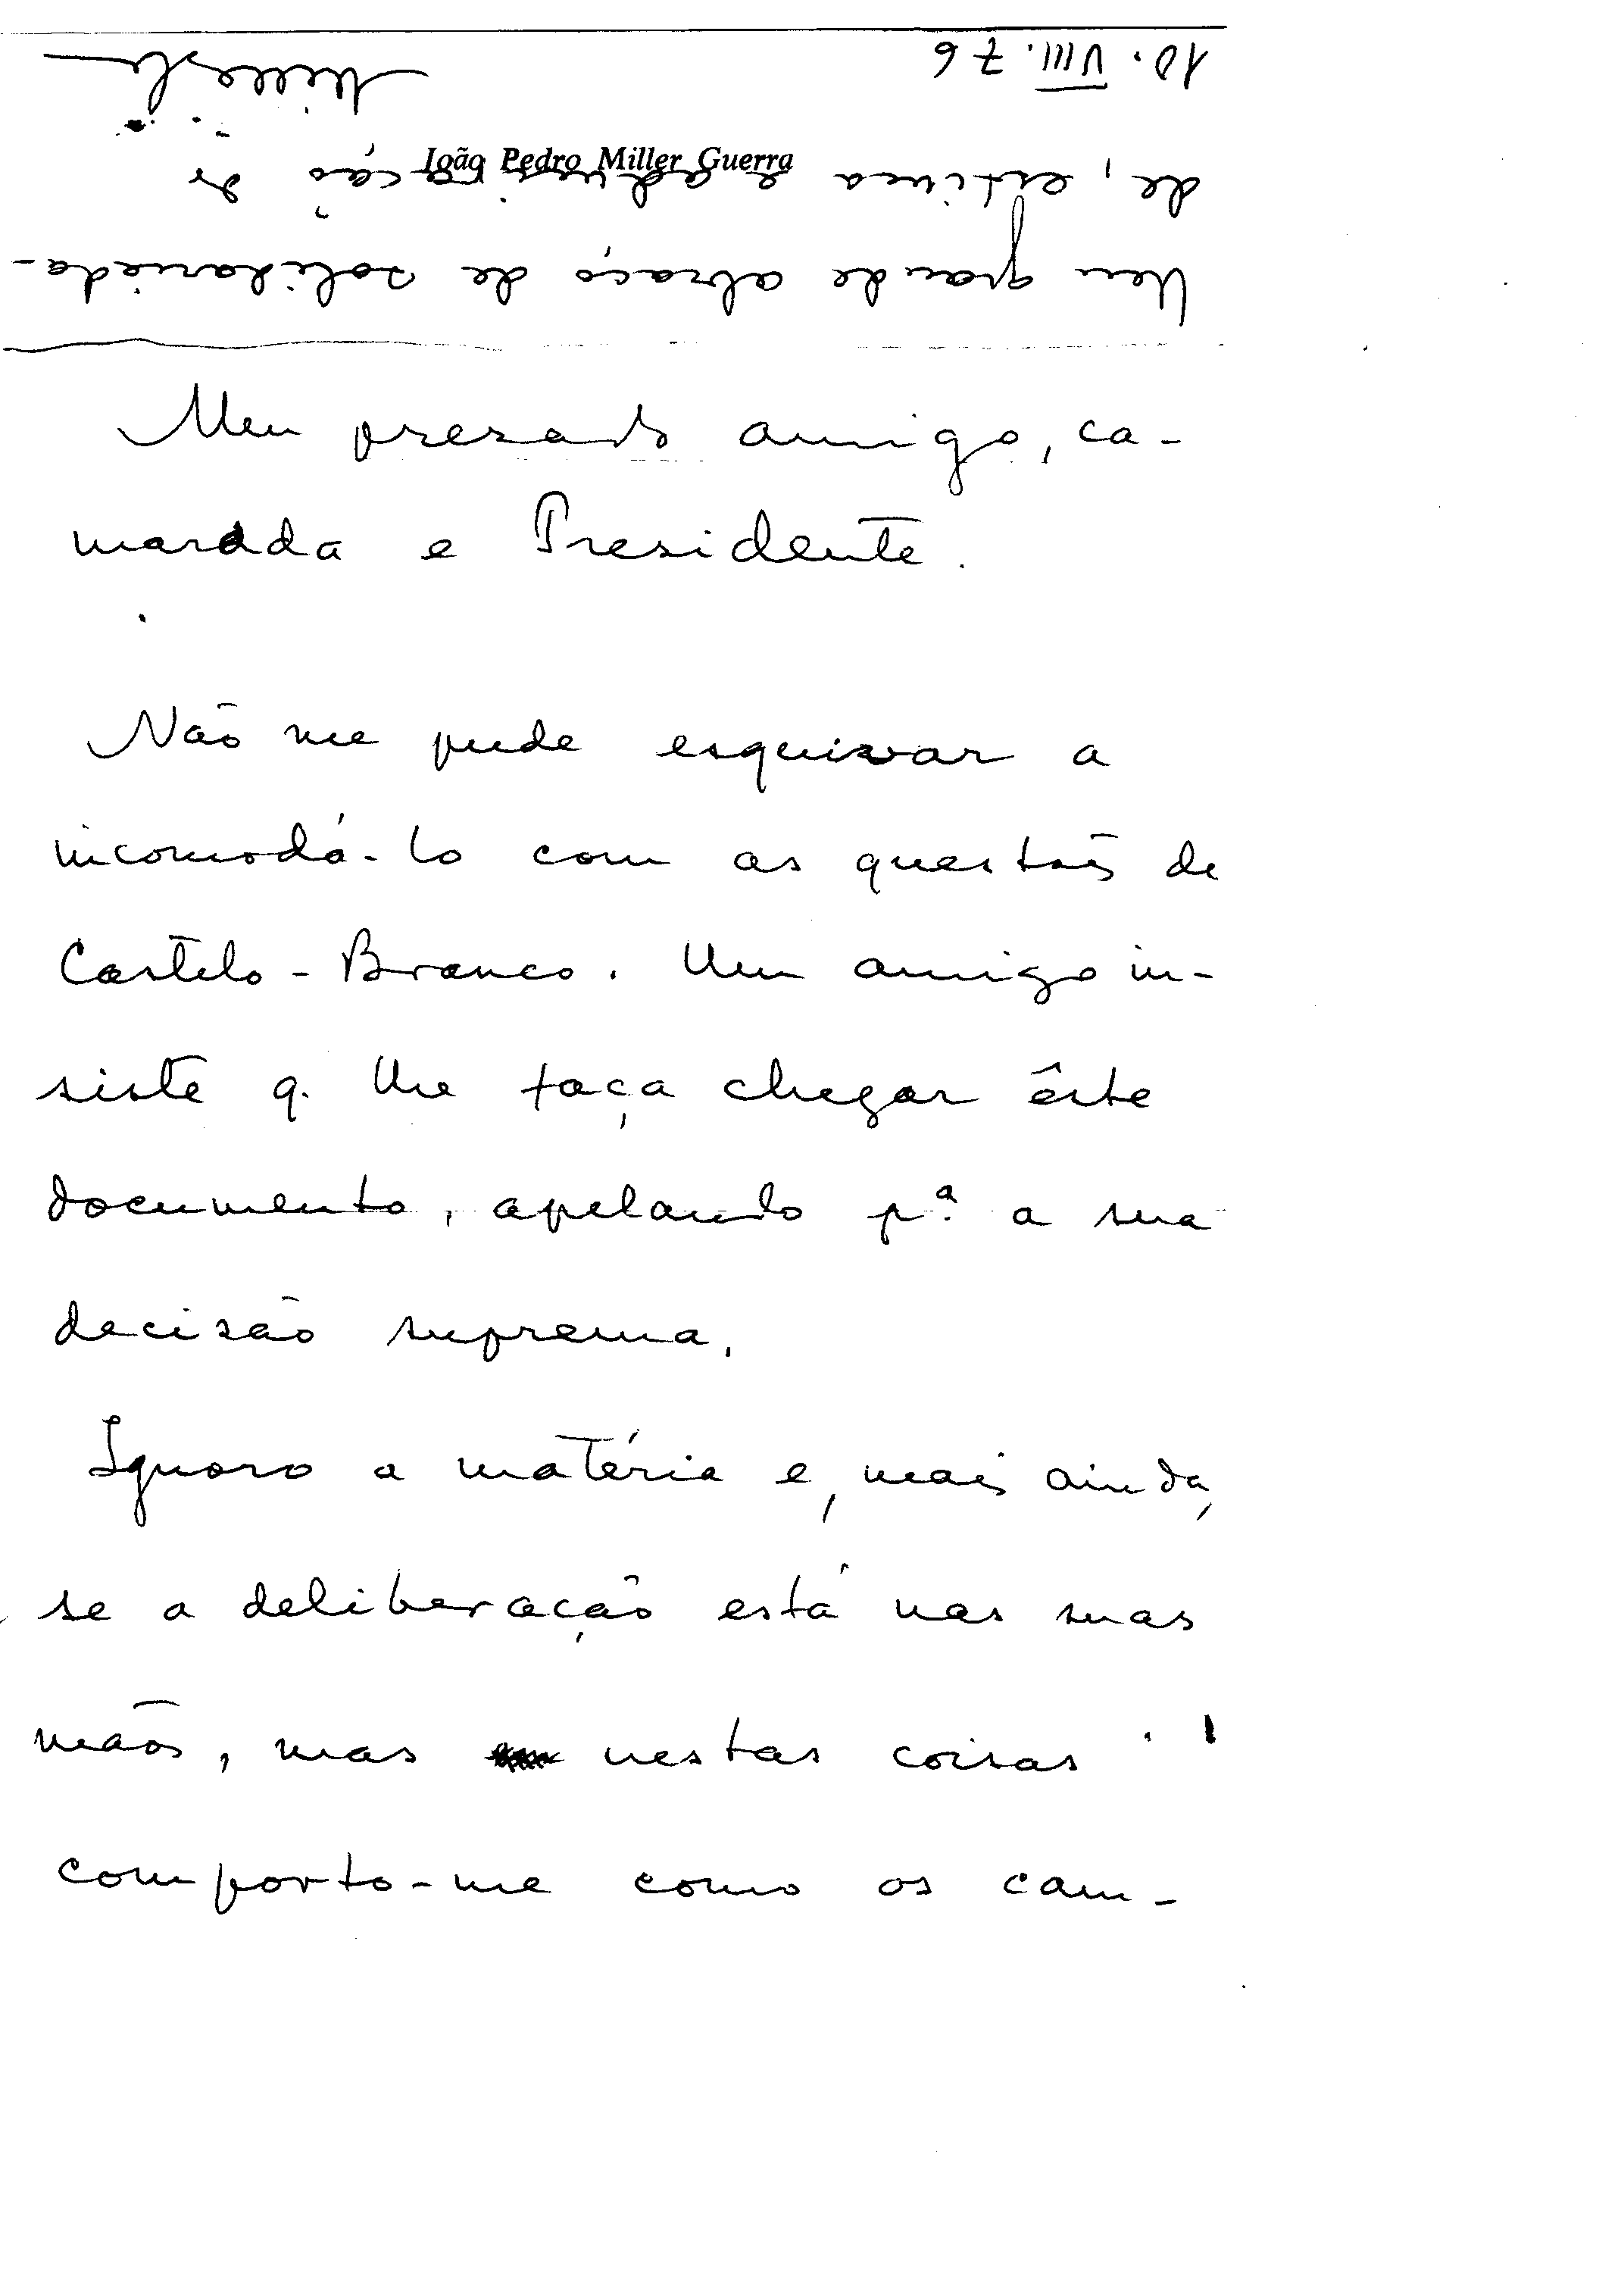 João Pedro Miller Guerra
Meu presado amigo, ca-
marada e Presidente.
Não me pude esquivar a
incomodá-lo com as questões de
Castelo-Branco. Um amigo in-
siste q. lhe faça chegar êste
documento, apelando pª a sua
decisão suprema.
Ignoro a matéria e, mais ainda,
se a deliberação está nas suas
mãos, mas nestas coisas
comporto-me como os cam-
Um grande abraço de solidarieda-
de, estima e admiração do
10.VIII.76